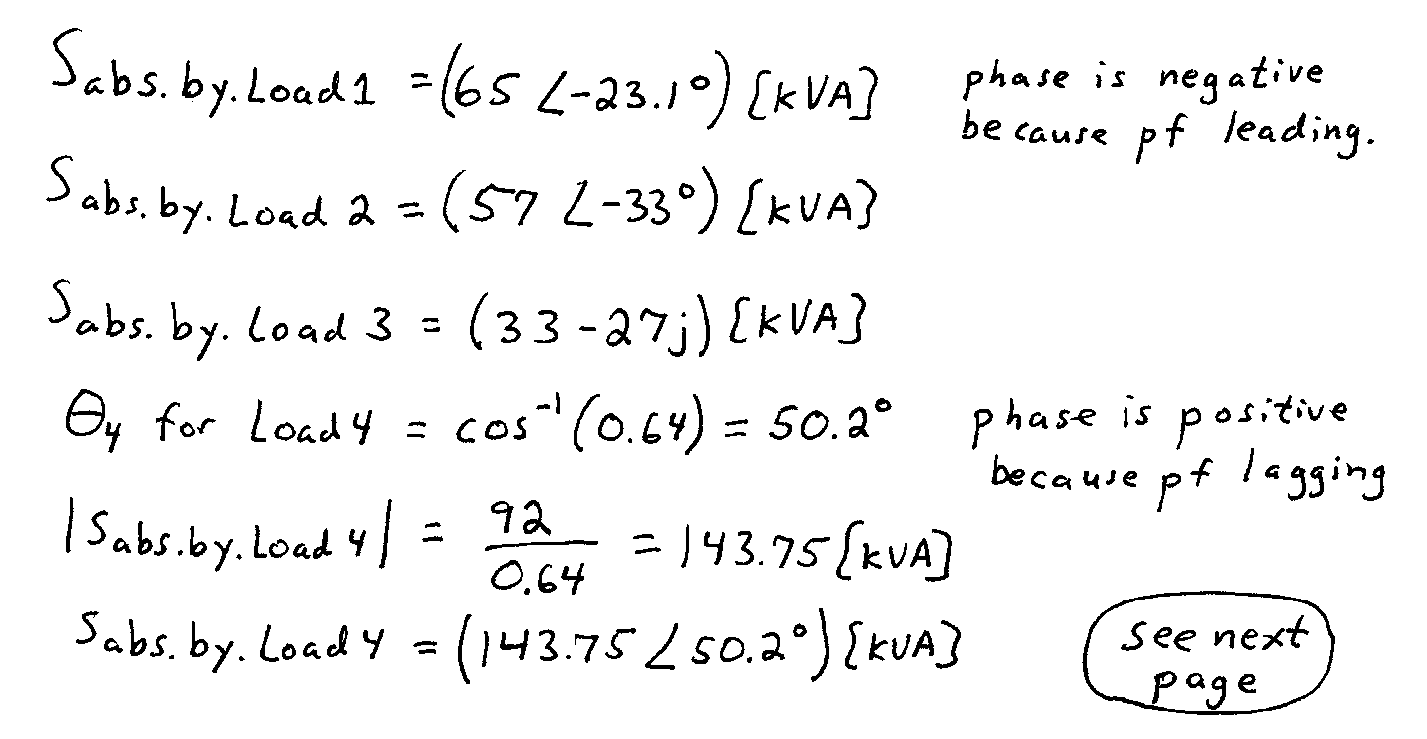 Sabs.by.Load1 = (65 ∠-23.1°) [kVA] phase is negative
because pf leading.
Sabs.by.Load 2 = (57 ∠-33°) [kVA]
Sabs.by.Load 3 = (33-27j) [kVA]
θ4 for Load4 = cos⁻¹(0.64) = 50.2° phase is positive
because pf lagging
|Sabs.by.Load 4| = 92/0.64 = 143.75 [kVA]
Sabs.by.Load4 = (143.75 ∠50.2°) [kVA]
see next
page